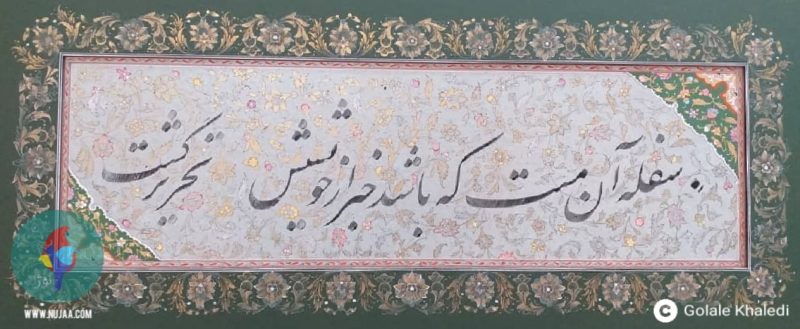 سفله آن مست که باشد خبر از خویشتنش تحریر گشت
WWW.NUJAA.COM
C Golale Khaledi